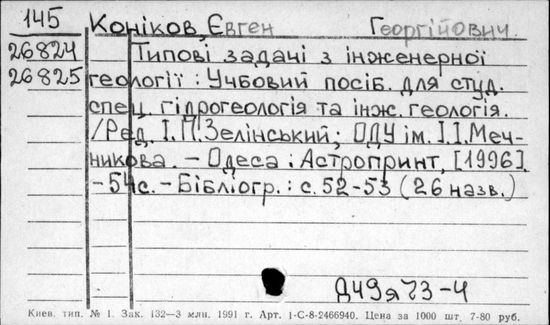 145
Коніков, Євген Георгійович.
26824 Типові задачі з інженерної
26825 геології : Учбовий посіб. для студ.
спец. гідрогеологія та інж. геологія.
/Ред. І.П.Зелінський; ОДУ ім. І.І.Меч-
никова. – Одеса : Астропринт, [1996].
-54с. – Бібліогр.: с. 52-53 (26 назв.)
Д49я73-4
Киев. тип. № 1. Зак. 132—3 млн. 1991 г. Арт. 1-С-8-2466940. Цена за 1000 шт. 7-80 руб.